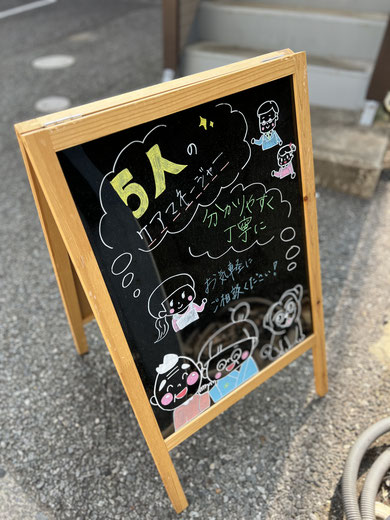 5人の
ケアマネージャーに
分かりやすく
丁寧に
お気軽に
ご相談ください!